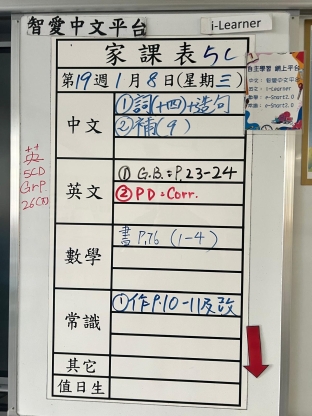 智愛中文平台
i-Learner
家課表5C
第19週1月8日(星期三)
中文
①詞(十四)+造句
②補(9)
英文
① G.B.=P.23-24
② PD=Corr.
數學
書P.76 (1-4)
常識
①作P.10-11及改
其它
值日生
自主學習 網上平台
中文: 智愛中文平台
英文: i-Learner
數學: e-Smart2.0
常識: e-Smart2.0
英
5CD
Grp.